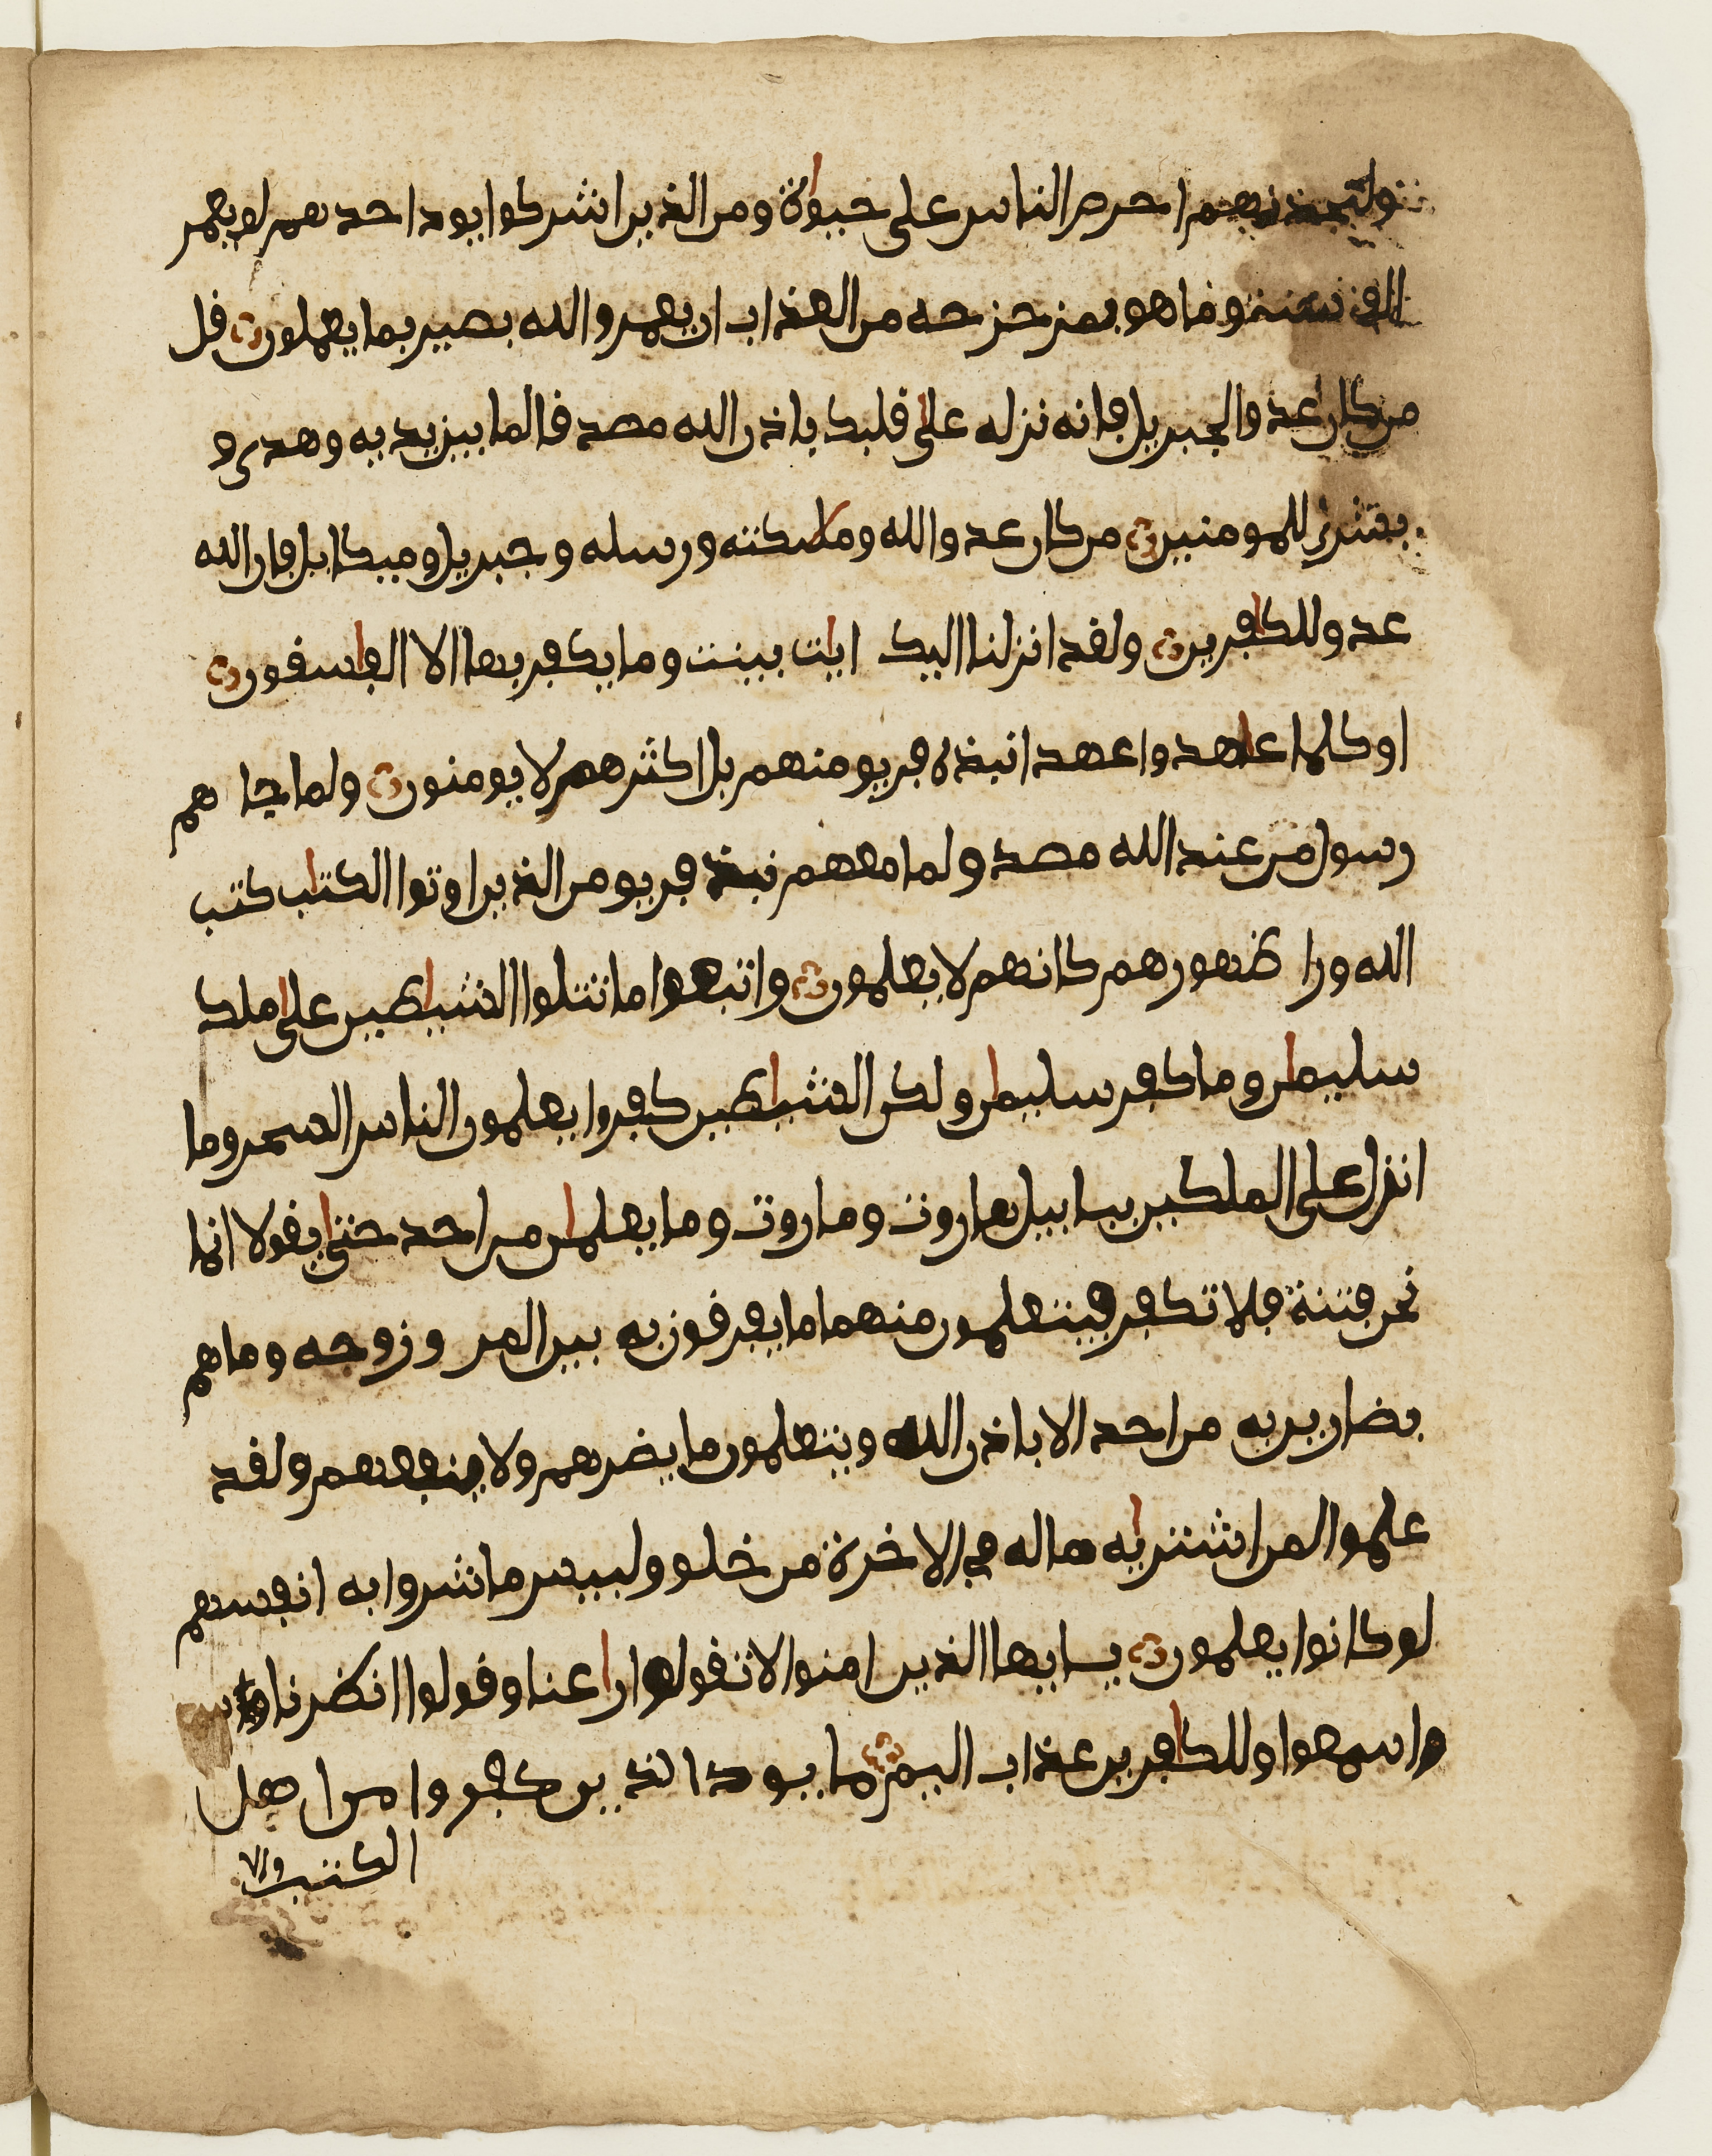 ولتجدنهم احرص الناس على حيوة ومن الذين اشركوا يود احدهم لو يعمر
الف سنة وما هو بمزحزحه من العذاب ان يعمر والله بصير بما يعملون قل
من كان عدوا لجبريل فانه نزله على قلبك باذن الله مصدقا لما بين يديه وهدى و
بشرى للمومنين من كان عدوا لله وملئكته ورسله وجبريل وميكايل فان الله
عدو للكافرين ولقد انزلنا اليك ايات بينت وما يكفر بها الا الفاسقون
او كلما عاهدوا عهدا نبذه فريق منهم بل اكثرهم لا يومنون ولما جا هم
رسول من عند الله مصدق لما معهم نبذ فريق من الذين اوتوا الكتاب كتب
الله ورا ظهورهم كانهم لا يعلمون واتبعوا ما تتلوا الشياطين على ملك
سليمان وما كفر سليمان ولكن الشياطين كفروا يعلمون الناس السحر وما
انزل على الملكين ببابل هاروت وماروت وما يعلمان من احد حتى يقولا انما
نحن فتنة فلا تكفر فيتعلمون منهما ما يفرقون به بين المر وزوجه وما هم
بضارين به من احد الا باذن الله ويتعلمون ما يضرهم ولا ينفعهم ولقد
علموا لمن اشتريه ما له في الاخرة من خلق ولبيس ما شروا به انفسهم
لو كانوا يعلمون يايها الذين امنوا لا تقولوا راعنا وقولوا انظرنا
واسمعوا وللكافرين عذاب اليم ما يود الذين كفروا من اهل
الكتب ولا